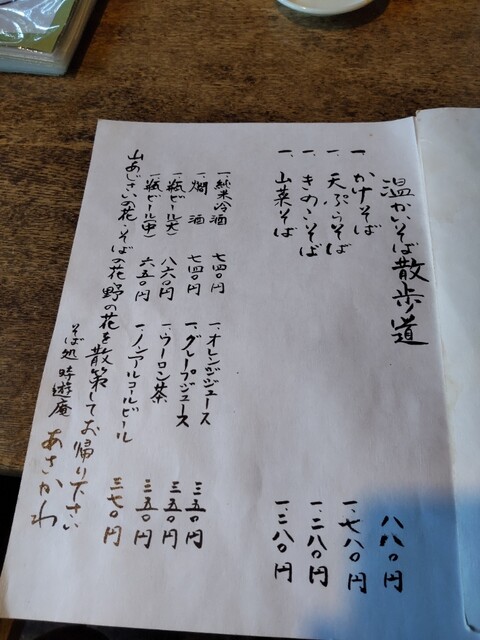 温かいそば散歩道
一、かけそば 八八〇円
一、天ぷらそば 一、七八〇円
一、きのこそば 一、二八〇円
一、山菜そば 一、二八〇円
一、純米冷酒 七四〇円
一、燗酒 七四〇円
一、瓶ビール(大) 八六〇円
一、瓶ビール(中) 六五〇円
一、オレンジジュース 三五〇円
一、グレープジュース 三五〇円
一、ウーロン茶 三五〇円
一、ノンアルコールビール 三七〇円
山あじさいの花・そばの花 野の花を散策してお帰り下さい
そば処 時遊庵 あさかわ